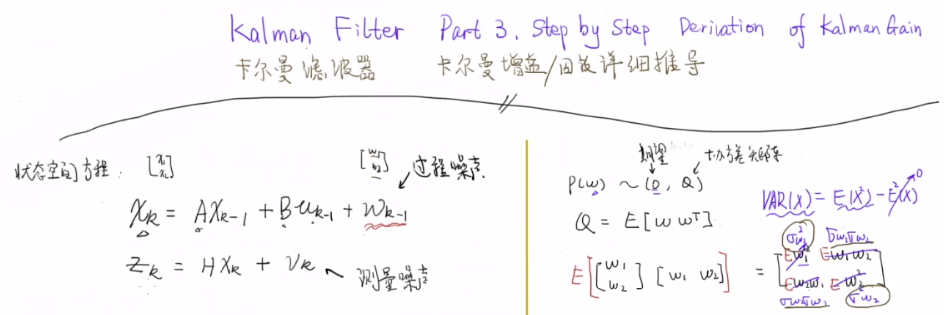 Kalman Filter Part 3. Step by Step Derivation of Kalman Gain
卡尔曼滤波器 卡尔曼增益/因数详细推导
状态空间方程: [x₁ x₂]
[w₁ w₂] 过程噪声
X_k = AX_{k-1} + Bu_{k-1} + w_{k-1}
Z_k = HX_k + V_k 测量噪声
期望 协方差矩阵
P(w) ~ (0, Q)
Q = E[w wᵀ]
VAR(X) = E(X²) - E²(X) 0
E[[w₁ w₂] [w₁ w₂]] = [Ew₁² Ew₁w₂
Ew₂w₁ Ew₂²]
σ²w₁ σw₁σw₂
σw₂σw₁ σ²w₂